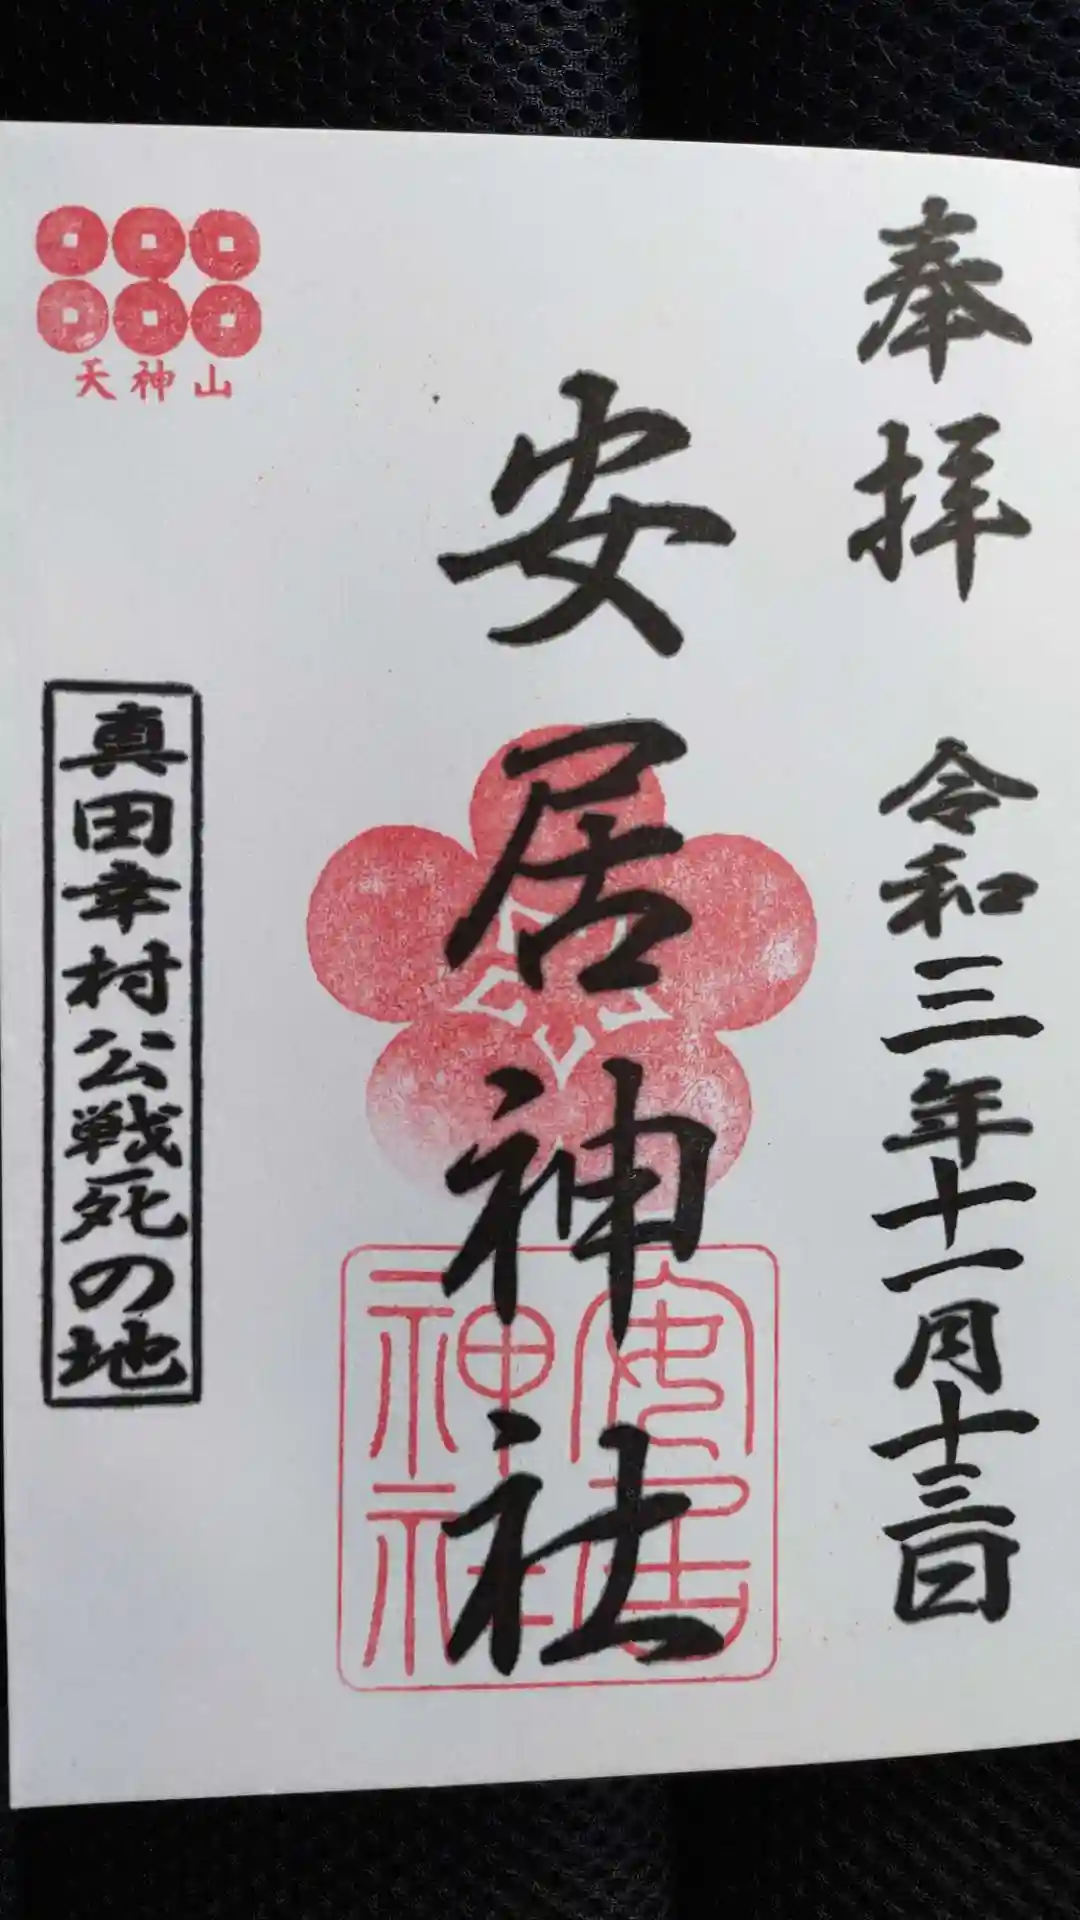 奉拝 令和三年十一月十三日
安居神社
安居神社
天神山
真田幸村公戦死の地